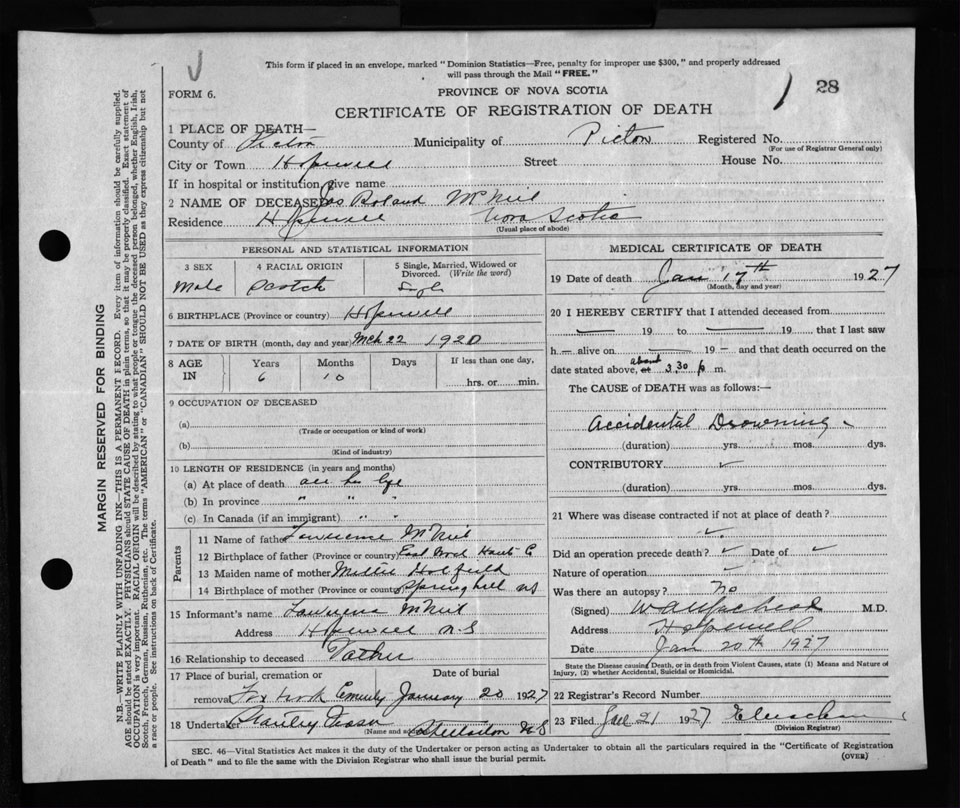 This form if placed in an envelope, marked "Dominion Statistics—Free, penalty for improper use $300," and properly addressed
will pass through the Mail "FREE."
FORM 6.
PROVINCE OF NOVA SCOTIA
28
CERTIFICATE OF REGISTRATION OF DEATH
1 PLACE OF DEATH—
County of Pictou Municipality of Pictou Registered No.
(For use of Registrar General only)
City or Town Hopewell Street House No.
If in hospital or institution give name
2 NAME OF DECEASED Jas Roland McNeil
Residence Hopewell Nova Scotia
(Usual place of abode)
PERSONAL AND STATISTICAL INFORMATION
3 SEX Male
4 RACIAL ORIGIN Scotch
5 Single, Married, Widowed or Divorced. (Write the word) Single
6 BIRTHPLACE (Province or country) Hopewell
7 DATE OF BIRTH (month, day and year) Mch 22 1920
8 AGE IN Years 6 Months 10 Days If less than one day, hrs. or min.
9 OCCUPATION OF DECEASED
(a)
(Trade or occupation or kind of work)
(b)
(Kind of industry)
10 LENGTH OF RESIDENCE (in years and months)
(a) At place of death all his life
(b) In province " " "
(c) In Canada (if an immigrant) " "
Parents
11 Name of father Lawrence McNeil
12 Birthplace of father (Province or country) East
13 Maiden name of mother
14 Birthplace of mother (Province or country) Springhill NS
15 Informant's name Lawrence McNeil
Address Hopewell N.S
16 Relationship to deceased Father
17 Place of burial, cremation or removal Cemetery
Date of burial January 20 1927
18 Undertaker Stanley
(Name and address) Stellarton N.S
MEDICAL CERTIFICATE OF DEATH
19 Date of death Jan 17th 1927
(Month, day and year)
20 I HEREBY CERTIFY that I attended deceased from
— 19 to — 19 that I last saw
h — alive on — 19 — and that death occurred on the
date stated above, at about 3.30 p m.
The CAUSE of DEATH was as follows:—
Accidental Drowning
(duration) yrs. mos. dys.
CONTRIBUTORY
(duration) yrs. mos. dys.
21 Where was disease contracted if not at place of death?
Did an operation precede death? Date of
Nature of operation
Was there an autopsy? no
(Signed) M.D.
Address Hopewell
Date Jan 20th 1927
State the Disease causing Death, or in death from Violent Causes, state (1) Means and Nature of
Injury, (2) whether Accidental, Suicidal or Homicidal.
22 Registrar's Record Number
23 Filed 21 1927
(Division Registrar)
SEC. 46—Vital Statistics Act makes it the duty of the Undertaker or person acting as Undertaker to obtain all the particulars required in the "Certificate of Registration
of Death" and to file the same with the Division Registrar who shall issue the burial permit.
(OVER)
MARGIN RESERVED FOR BINDING
N.B.—WRITE PLAINLY, WITH UNFADING INK—THIS IS A PERMANENT RECORD. Every item of information should be carefully supplied.
AGE should be stated EXACTLY. PHYSICIANS should STATE CAUSE OF DEATH in plain terms, so that it may be properly classified. Exact statement of
OCCUPATION is very important. RACIAL ORIGIN will be described by stating to what people or tongue the deceased person belonged, whether English, Irish,
Scotch, French, German, Russian, Ruthenian, etc. The terms "AMERICAN" or "CANADIAN" SHOULD NOT BE USED as they express citizenship but not
a race or people. See instructions on back of Certificate.